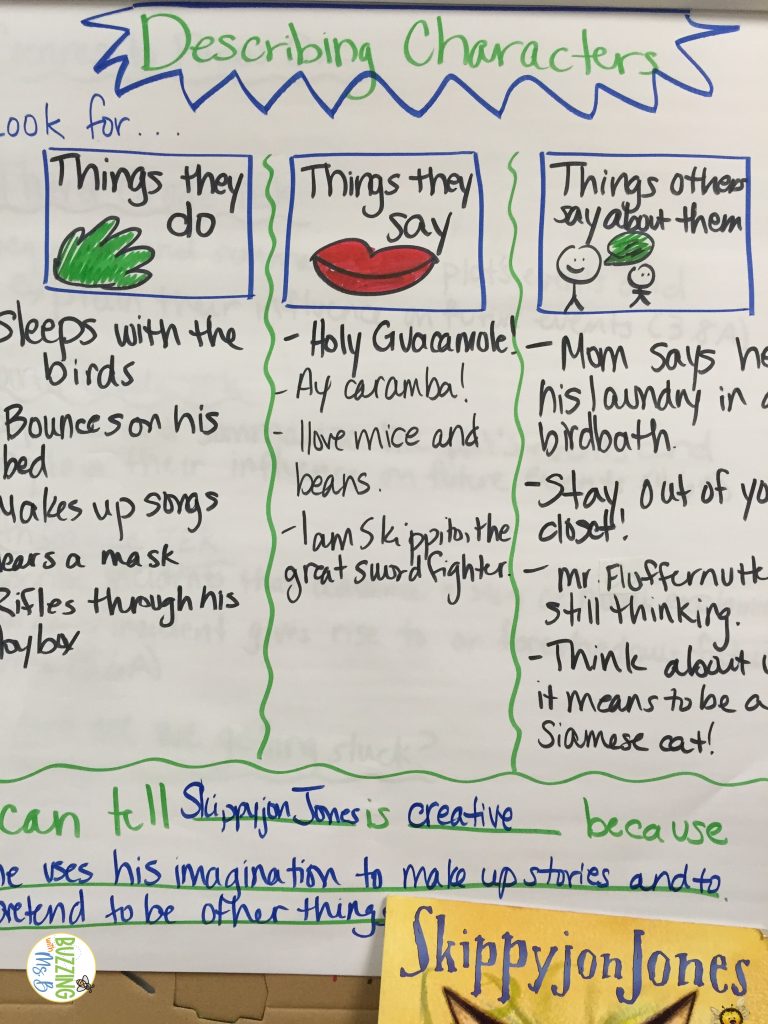 Describing Characters
Look for...
Things they
do
Sleeps with the
birds
Bounces on his
bed
Makes up songs
ears a mask
Rifles through his
toybox
Things they
say
- Holy Guacamole!
- Ay caramba!
- I love mice and
beans.
- I am Skippito, the
great sword fighter.
Things others
say about them
- Mom says he
his laundry in a
birdbath.
- Stay out of yo
closet!
- Mr. Fluffernutt
still thinking.
- Think about w
it means to be a
Siamese cat!
can tell Skippyjon Jones is creative because
he uses his imagination to make up stories and to
pretend to be other things
SkippyjonJones
BUZZING
with
Ms. B